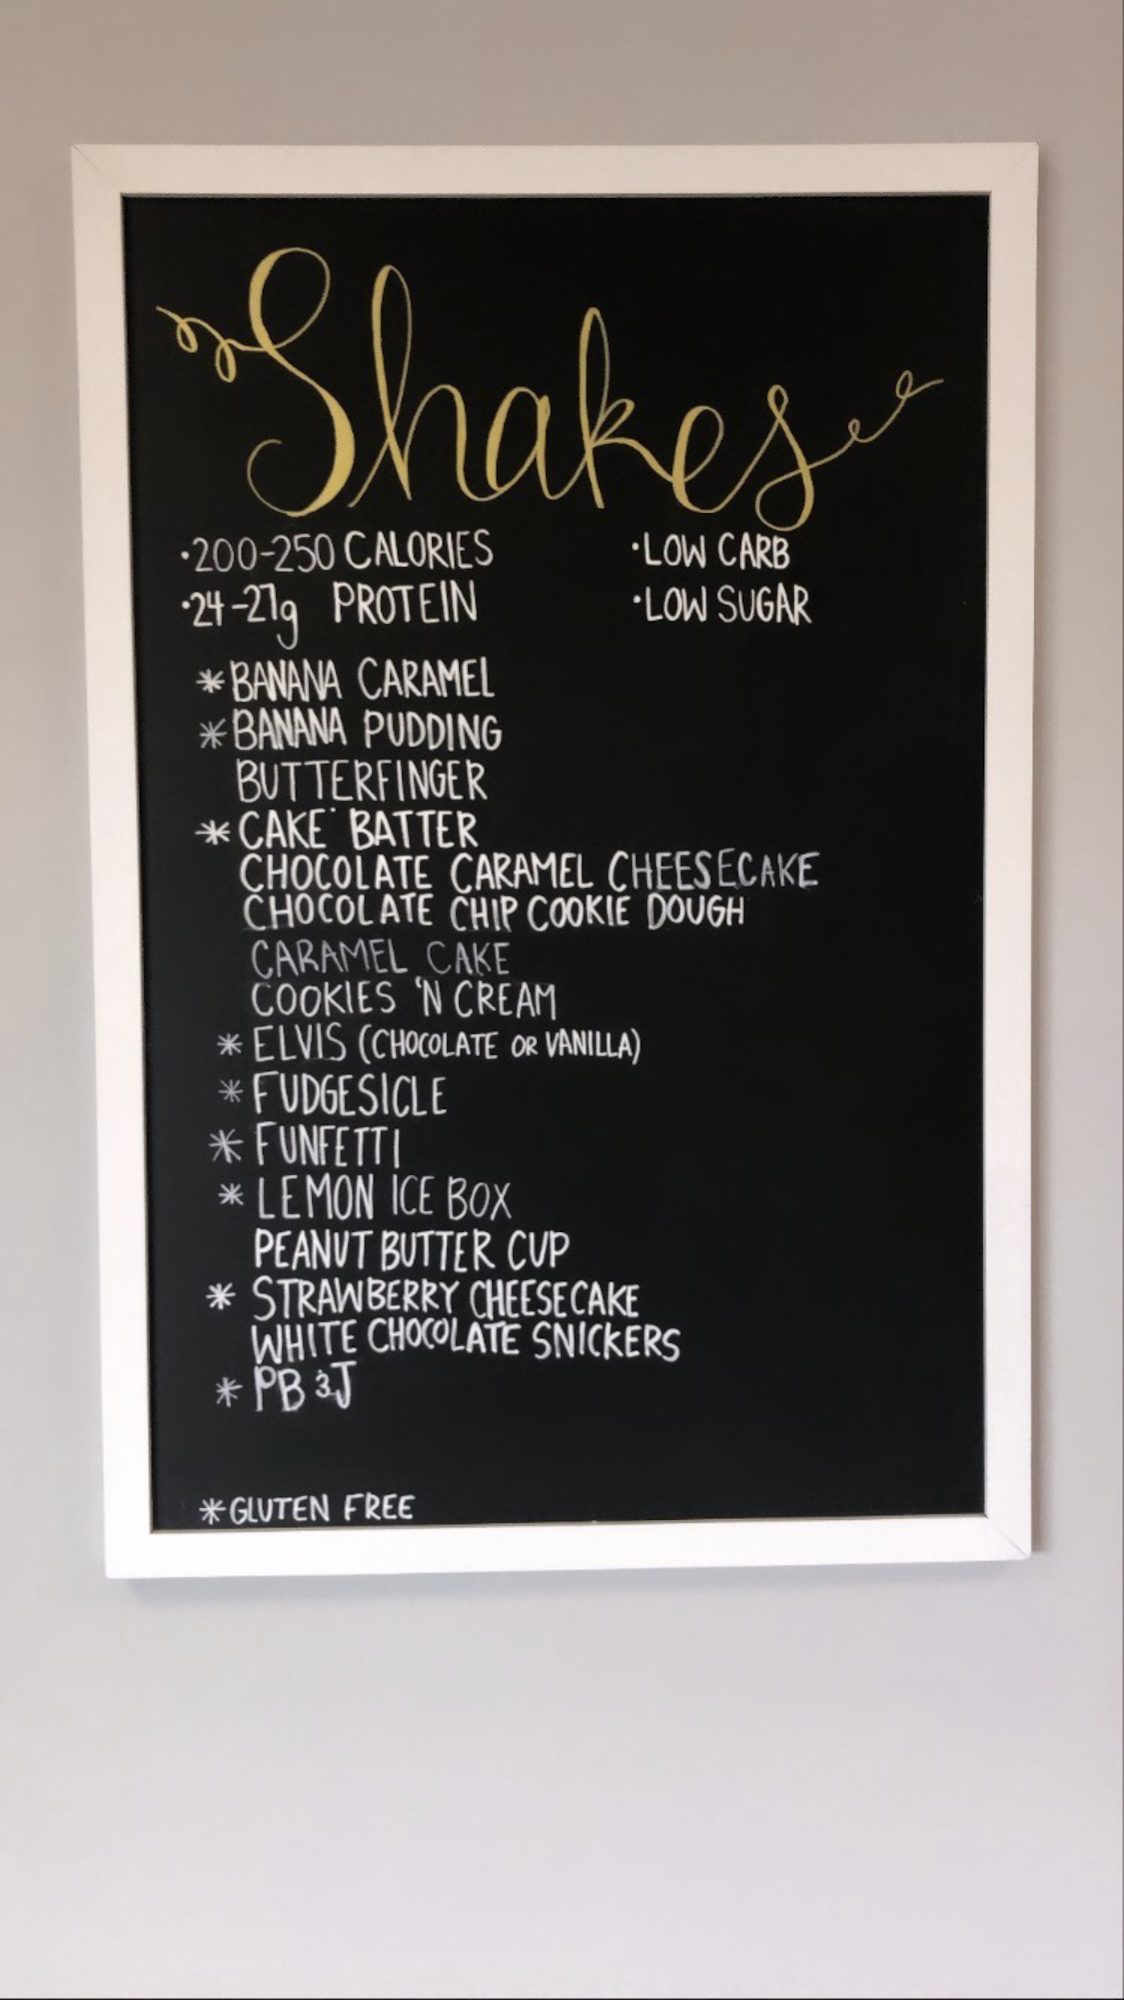 Shakes
·200-250 CALORIES ·LOW CARB
·24-27g PROTEIN ·LOW SUGAR
*BANANA CARAMEL
*BANANA PUDDING
BUTTERFINGER
*CAKE BATTER
CHOCOLATE CARAMEL CHEESECAKE
CHOCOLATE CHIP COOKIE DOUGH
CARAMEL CAKE
COOKIES 'N CREAM
*ELVIS (CHOCOLATE OR VANILLA)
*FUDGESICLE
*FUNFETTI
*LEMON ICE BOX
PEANUT BUTTER CUP
*STRAWBERRY CHEESECAKE
WHITE CHOCOLATE SNICKERS
*PB &J
*GLUTEN FREE